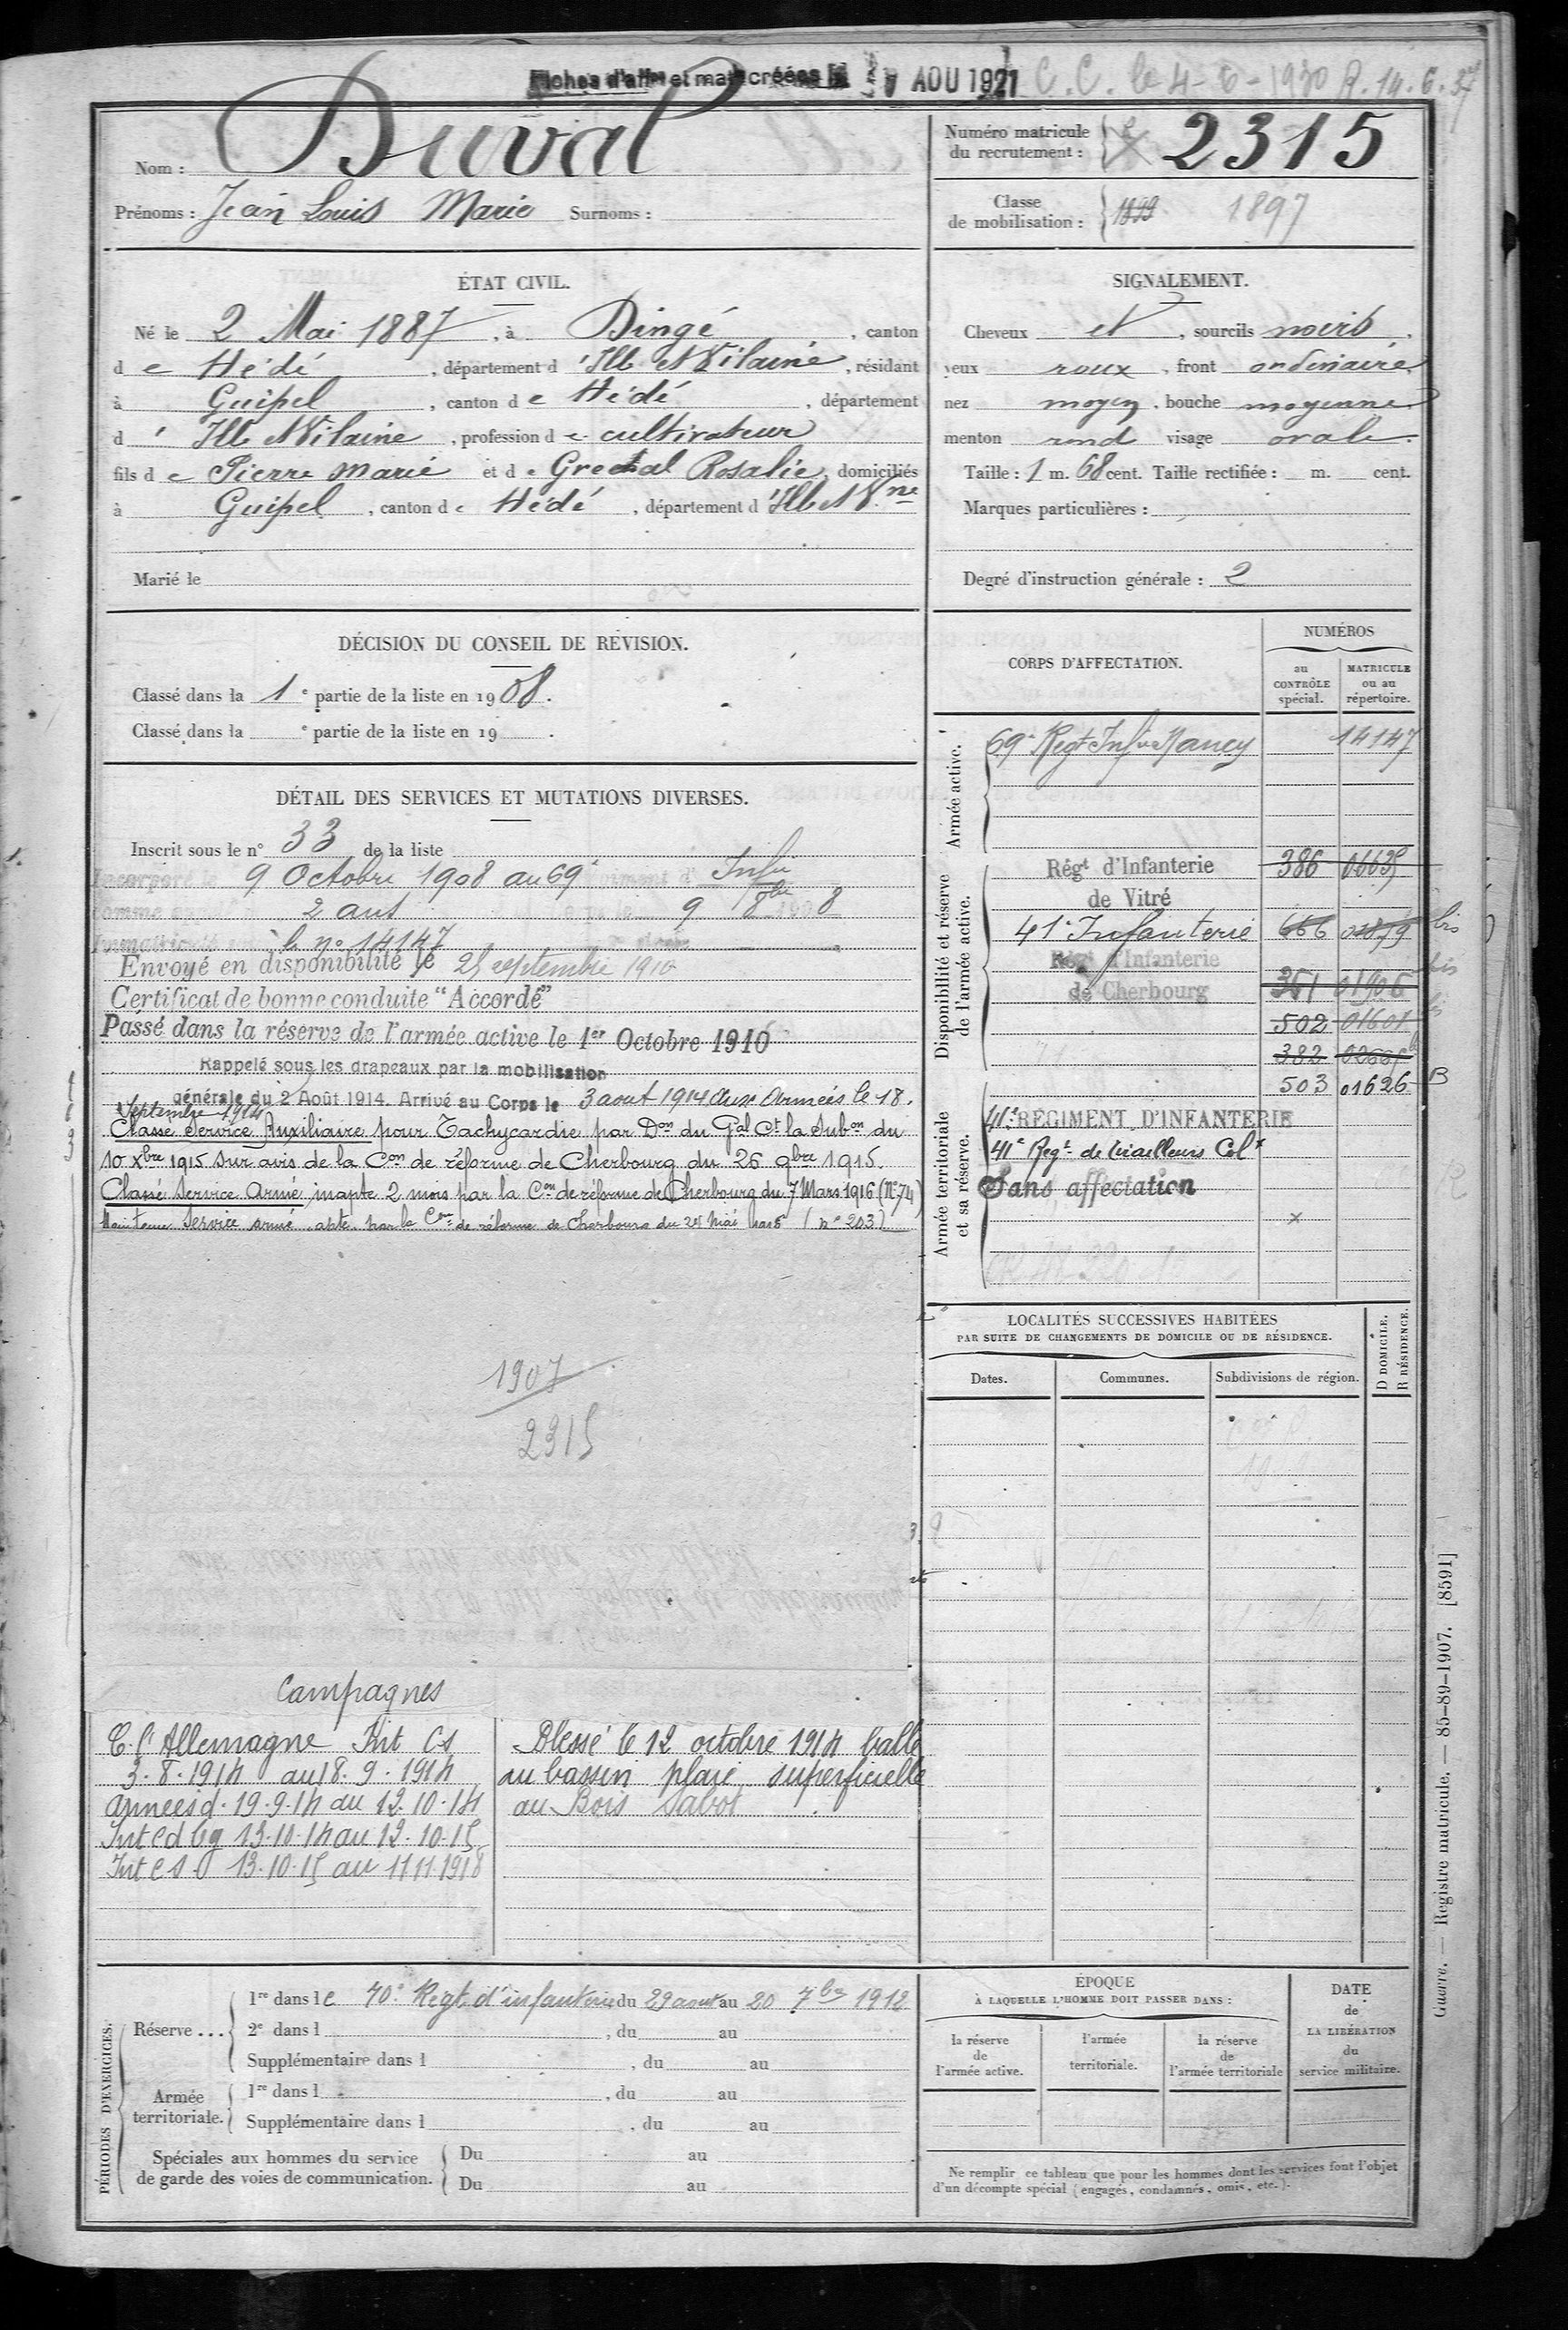 Fiches d'aff<sup>on</sup> et mat<sup>le</sup> créées le AOU 1921 C. C. le 4-6-1930 R. 14.6.37
Nom : Duval
Prénoms : Jean Louis Marie Surnoms :
Numéro matricule du recrutement : 2315
Classe de mobilisation : 1899 1897
ÉTAT CIVIL.
Né le 2 Mai 1887, à Dingé, canton
de Hédé, département d'Ille et Vilaine, résidant
à Guipel, canton de Hédé, département
d'Ille et Vilaine, profession de cultivateur
fils de Pierre Marie et de Grechal Rosalie, domiciliés
à Guipel, canton de Hédé, département d'Ille et Vne
Marié le
SIGNALEMENT.
Cheveux et, sourcils noirs,
yeux roux, front ordinaire,
nez moyen, bouche moyenne
menton rond visage ovale.
Taille : 1 m. 68 cent. Taille rectifiée : m. cent.
Marques particulières :
Degré d'instruction générale : 2
DÉCISION DU CONSEIL DE REVISION.
Classé dans la 1e partie de la liste en 1908.
Classé dans la e partie de la liste en 19 .
DÉTAIL DES SERVICES ET MUTATIONS DIVERSES.
Inscrit sous le n° 33 de la liste
Incorporé le 9 Octobre 1908 au 69e Infie
2 ans 9 8bre 1908
Immatriculé le no 14147
Envoyé en disponibilité le 25 septembre 1910
Certificat de bonne conduite "Accordé"
Passé dans la réserve de l'armée active le 1er Octobre 1910
Rappelé sous les drapeaux par la mobilisation
générale du 2 Août 1914. Arrivé au Corps le 3 aout 1914 Aux Armées le 18.
Septembre 1914
Classé Service Auxiliaire pour Tachycardie par Don du Gal Ct la Subon du
10 Xbre 1915 sur avis de la Con de réforme de Cherbourg du 26 9bre 1915.
Classé Service Armé, inapte 2 mois par la Con de réforme de Cherbourg du 7 Mars 1916 (No 74)
Maintenu Service armé apte par la Con de réforme de Cherbourg du 24 Mai 1916 (no 203)
1907
2315
CORPS D'AFFECTATION.
NUMÉROS
au CONTRÔLE spécial.
MATRICULE ou au répertoire.
Armée active.
69e Regt Infie Nancy 14147
Disponibilité et réserve de l'armée active.
Régt d'Infanterie 386
de Vitré
41e Infanterie 666 bis
Régt d'Infanterie
de Cherbourg 351 01906 bis
502 01601
382
503 01626 B
Armée territoriale et sa réserve.
41e RÉGIMENT D'INFANTERIE
41e Regt de tirailleurs Colx
Sans affectation
LOCALITÉS SUCCESSIVES HABITÉES
PAR SUITE DE CHANGEMENTS DE DOMICILE OU DE RÉSIDENCE.
Dates. Communes. Subdivisions de région.
D DOMICILE. R RÉSIDENCE.
Campagnes
C. l'Allemagne Int CS
3.8.1914 au 18.9.1914
Armées d. 19.9.14 au 12.10.14
Int cd bg 13.10.14 au 12.10.15
Int CS. 13.10.15 au 11 11.1918
Blessé le 12 octobre 1914 balle
au bassin plaie superficielle
au Bois Sabot
PÉRIODES D'EXERCICES.
Réserve ...
1re dans le 70e Regt d'infanterie du 29 aout au 20 7bre 1912
2e dans l , du au
Supplémentaire dans l , du au
Armée territoriale.
1re dans l , du au
Supplémentaire dans l , du au
Spéciales aux hommes du service
de garde des voies de communication.
Du au
Du au
ÉPOQUE
À LAQUELLE L'HOMME DOIT PASSER DANS :
la réserve de l'armée active.
l'armée territoriale.
la réserve de l'armée territoriale
DATE de LA LIBÉRATION du service militaire.
Ne remplir ce tableau que pour les hommes dont les services font l'objet
d'un décompte spécial (engagés, condamnés, omis, etc.).
Guerre. — Registre matricule. — 85-89-1907. [8591]